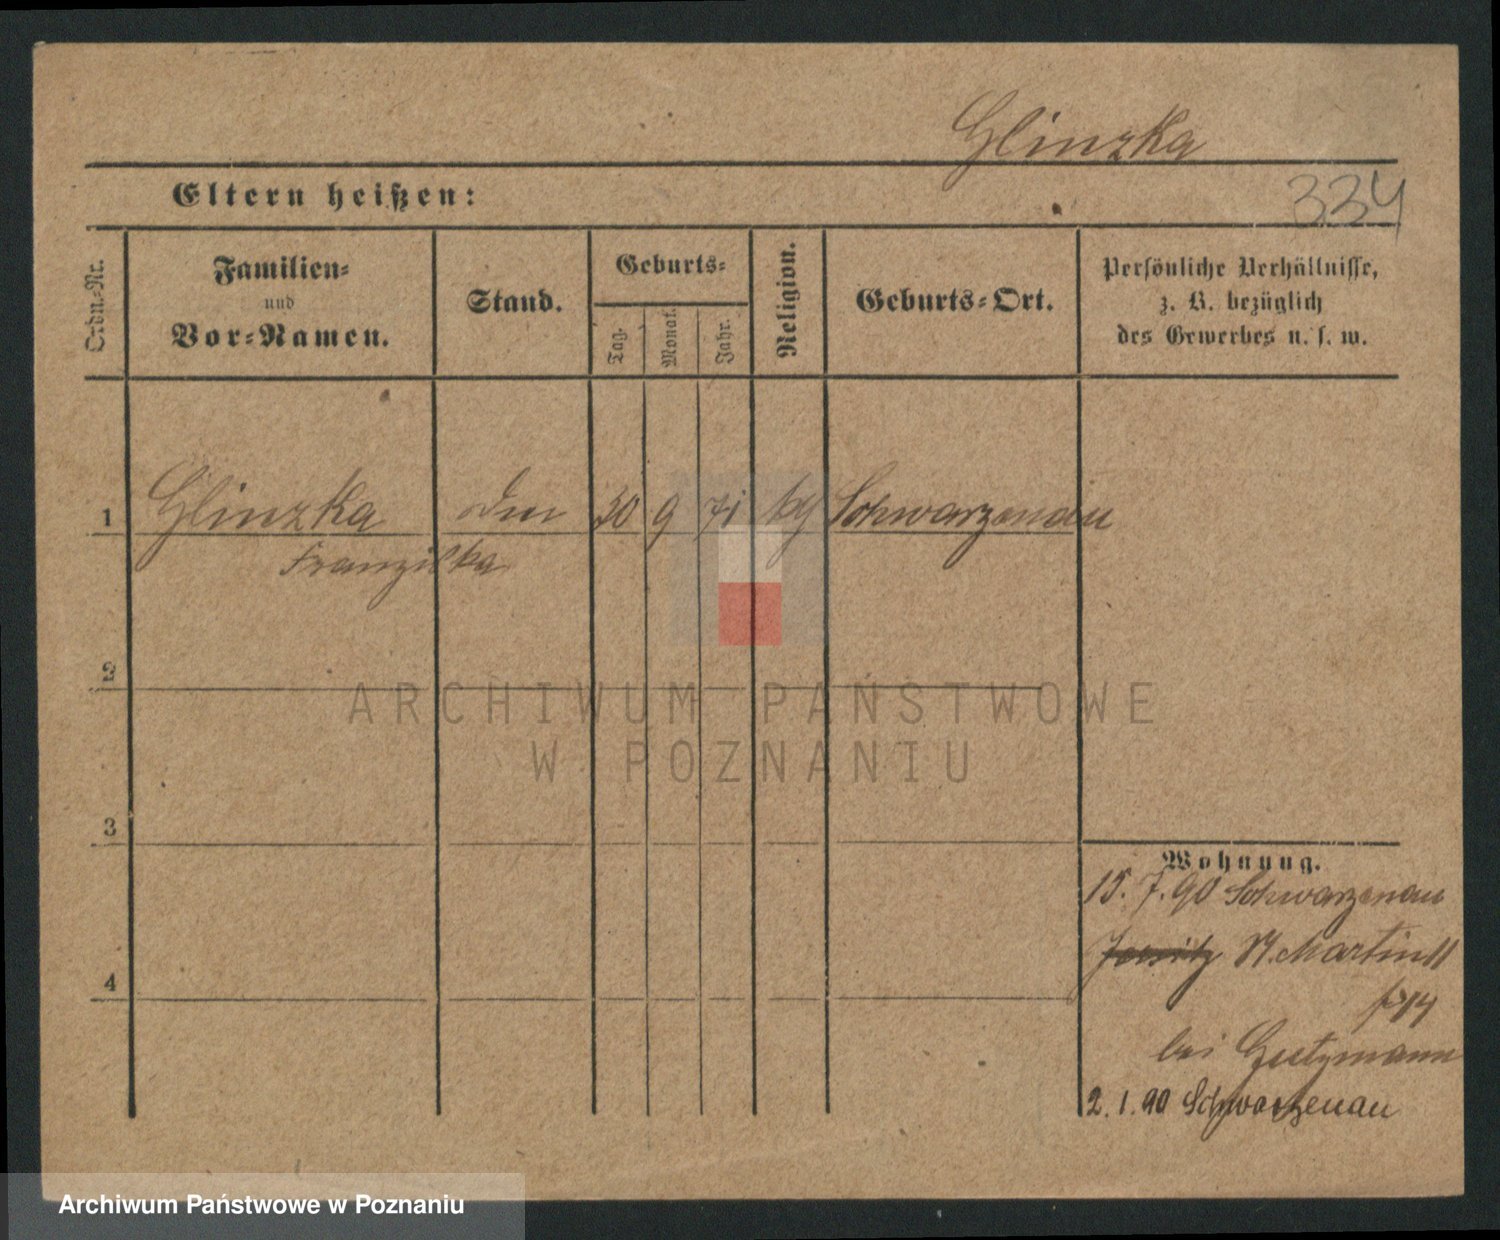 Glinzka
Eltern heißen:
334
Ordn.-Nr.
Familien-
und
Vor-Namen.
Stand.
Geburts-
Tag.
Monat.
Jahr.
Religion.
Geburts-Ort.
Persönliche Verhältnisse,
z. B. bezüglich
des Gewerbes u. s. w.
1 Glinzka 30 9 71 Schwarzenau
Franziska
2
ARCHIWUM PAŃSTWOWE
W POZNANIU
3
Wohnung.
15. 7. 90 Schwarzenau
Jersitz St. Martin 11
bei Gutzmann
4
2. 1. 90 Schwarzenau
Archiwum Państwowe w Poznaniu